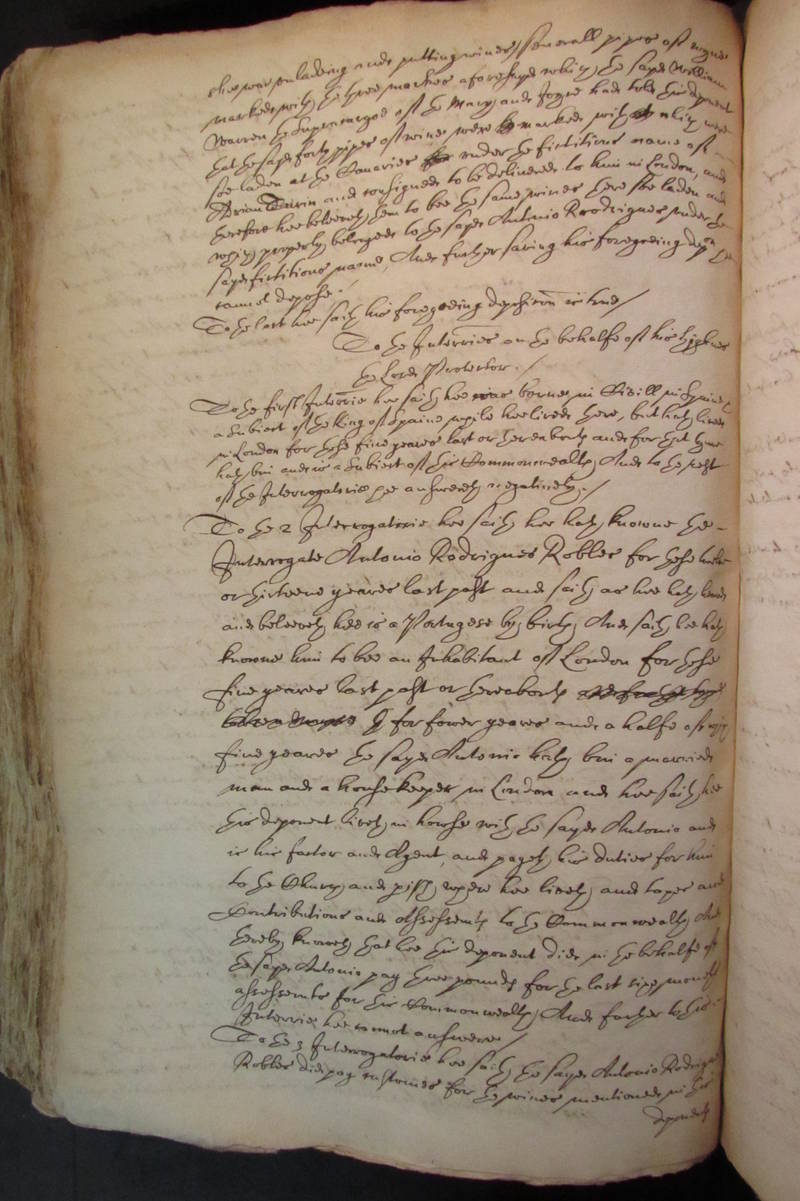 shee was unladeing and putting winers severall pipes of wynes
markes with the three markes aforesayd which the sayd William
Warren the Supracargoe of the Mary and Joyce had told this deponent
that the sayd forty pipes of wine were markes with which were
soe laden at the Canaries under the fictitious name of
Adrian and consigned to be delivered to him in London, and
therefore hee beleeveth them to bee the same wines there soe laden and
which properly belonged to the sayd Antonio Rodrigues under the
sayd fictitious name, And further saving his foregoeing deposition hee
cannot depose./
To the last hee saith his foregoeing deposition is true/
To the Interries on the behalfe of his highnes
the Lord Protector./
To the first Interrie hee saith hee was borne in Sivill in Spaine
a subiect of the King of Spaine while hee lived there, but hath lived
in London for these five yeares last or thereabouts and for that tyme
hath bin and is a subiect of this Commonwealth, And to the rest
of the Interrogatorie hee answereth negatively./
To the 2 Interrogatorie hee saith hee hath knowne the
Interrogate Antonio Rodrigues Robles for these twelve
or thirteene yeares last past and saith as hee hath heard
and beleeveth hee is a Portugese by birth, And saith hee hath
knowne him to bee an Inhabitant of London for these
five yeares last past or thereabouts
for fower yeares and a halfe of which
five yeares the sayd Antonio hath bin a married
man and a housekeeper in London and hee saith hee
this deponent liveth in howse with the sayd Antonio and
is his factor and Agent, and payeth his duties for him
to the Church and pish where hee liveth, and taxes and
Contributions and Assessments to the Commonwealth And
thereby knoweth that hee this deponent did in the behalfe of
the sayd Antonio pay three pounds for the last sixe moneths
assessments for this Commonwealth, And further to this
Interrie hee cannot answere/
To the 3 Interrogatorie hee saith the sayd Antonio Rodrigues
Robles did pay customes for the wines mentioned in this
deponents